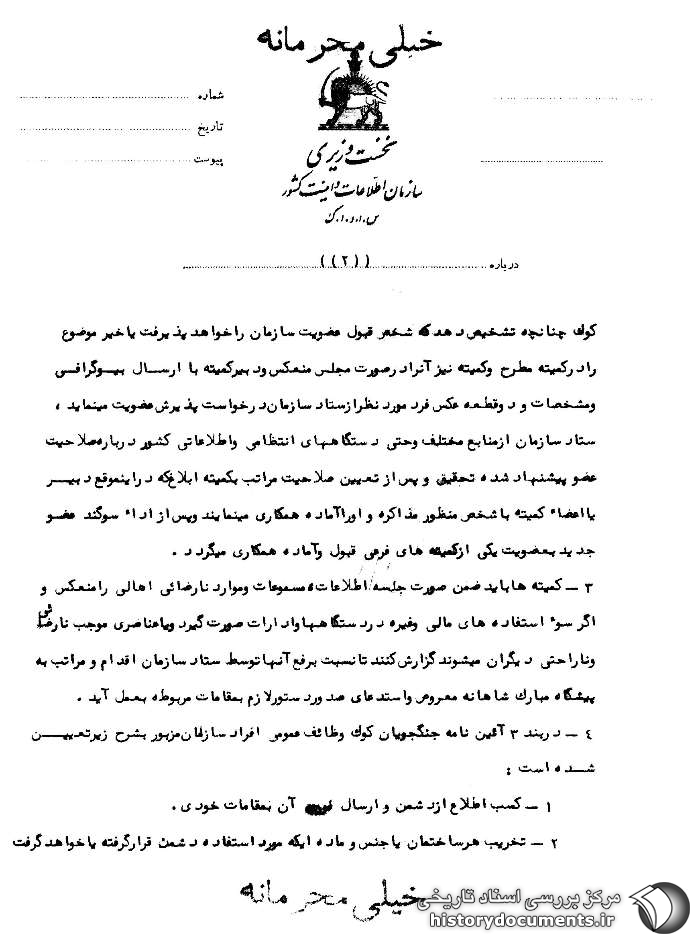 خیلی محرمانه
شماره
تاریخ
پیوست
نخست وزیری
سازمان اطلاعات و امنیت کشور
س.ا.و.ا.ک
درباره ((۲))
کوک چنانچه تشخیص دهد که شخص قبول عضویت سازمان را خواهد پذیرفت یا خیر موضوع
را در کمیته مطرح و کمیته نیز آنرا در صورت مجلس منعکس و دبیر کمیته با ارسال بیوگرافی
و مشخصات و دو قطعه عکس فرد مورد نظر از ستاد سازمان درخواست پذیرش عضویت مینماید ،
ستاد سازمان از منابع مختلف و حتی دستگاههای انتظامی و اطلاعاتی کشور درباره صلاحیت
عضو پیشنهاد شده تحقیق و پس از تعیین صلاحیت مراتب بکمیته ابلاغ که در اینموقع دبیر
یا اعضاء کمیته با شخص منظور مذاکره و او را آماده همکاری مینمایند و پس از اداء سوگند عضو
جدید بعضویت یکی از کمیته های فرعی قبول و آماده همکاری میگردد .
۳ – کمیته ها باید ضمن صورت جلسه اطلاعات و مسموعات و موارد نارضائی اهالی را منعکس و
اگر سوء استفاده های مالی و غیره در دستگاهها و ادارات صورت گیرد و یا عناصری موجب نارضائی
و ناراحتی دیگران میشوند گزارش کنند تا نسبت برفع آنها توسط ستاد سازمان اقدام و مراتب به
پیشگاه مبارک شاهانه معروض و استدعای صدور دستور لازم بمقامات مربوطه بعمل آید .
۴ – در بند ۳ آئین نامه جنگجویان کوک وظائف عمومی افراد سازمان مزبور بشرح زیر تعیین
شده است :
۱ – کسب اطلاع از دشمن و ارسال آن بمقامات خودی .
۲ – تخریب هر ساختمان یا جنس و ماده ایکه مورد استفاده دشمن قرار گرفته یا خواهد گرفت
خیلی محرمانه
مرکز بررسی اسناد تاریخی
historydocuments.ir